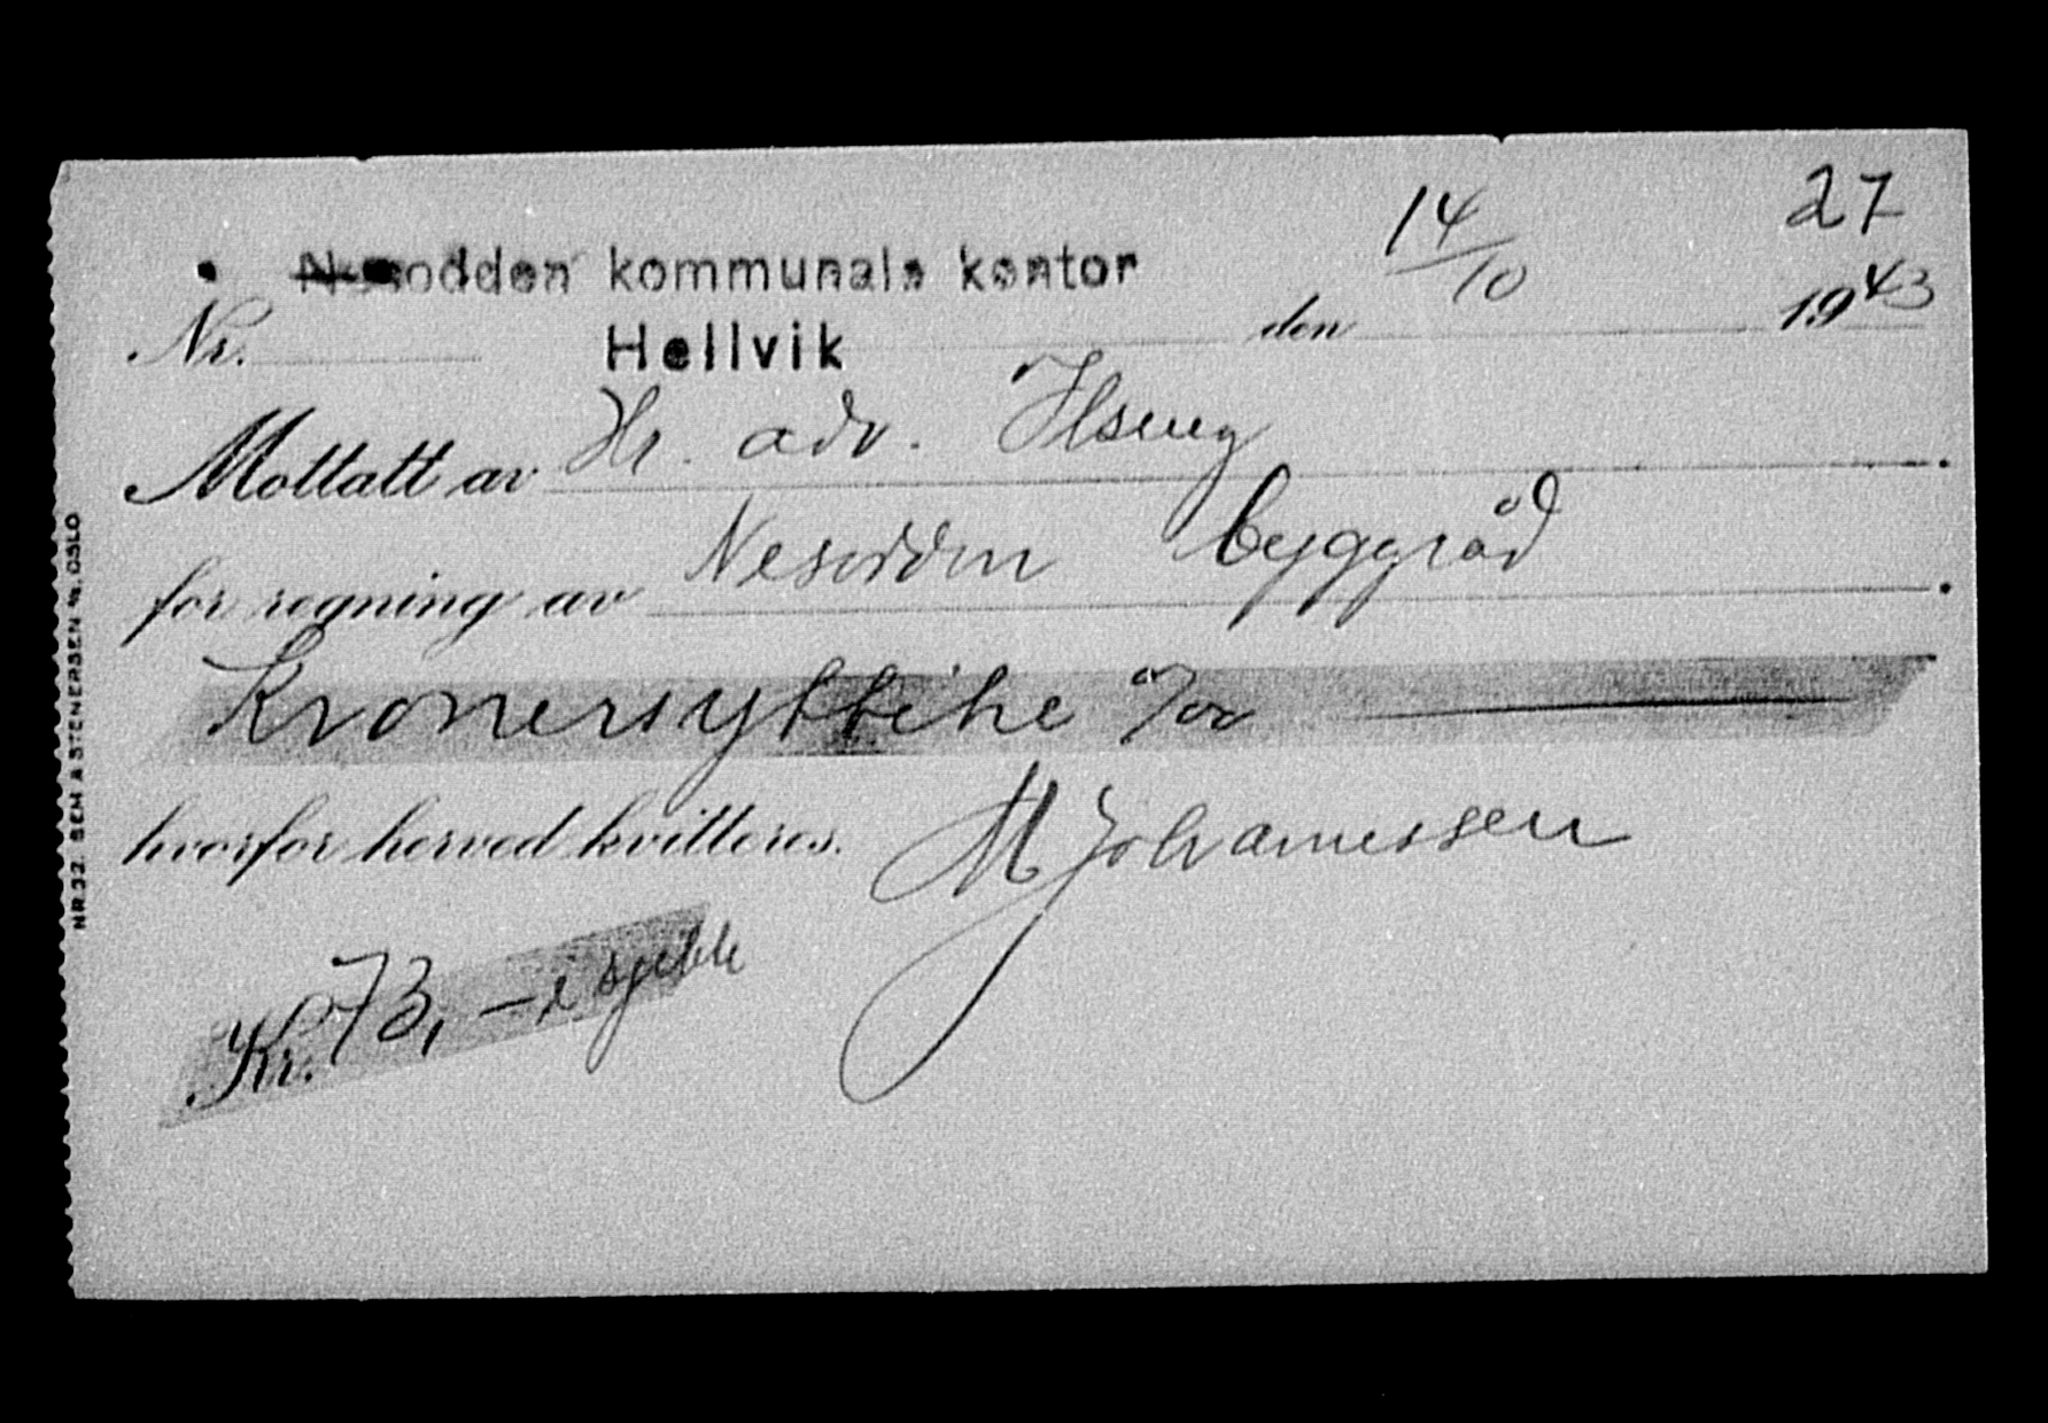 27
Nesodden kommunale kontor
14/10
Nr. Hellvik den 1943
Mottatt av Hr. adv. Ilseng.
for regning av Nesodden byggråd.
Kronersyttitre %oo
hvorfor herved kvitteres. M Johannessen
Kr. 73,- i sjekk
NR. 32. SEM & STENERSEN A/S. OSLO